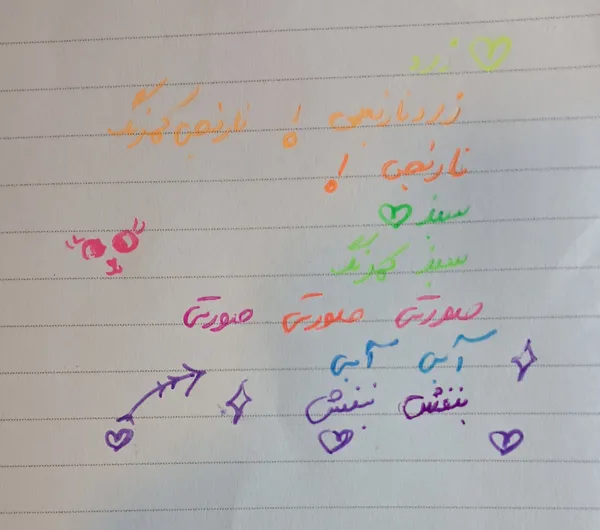 زرد
زرد نارنجی ! نارنجی کمرنگ
نارنجی !
سبز
سبز کمرنگ
صورتی صورتی صورتی
آبی آبی
بنفش بنفش